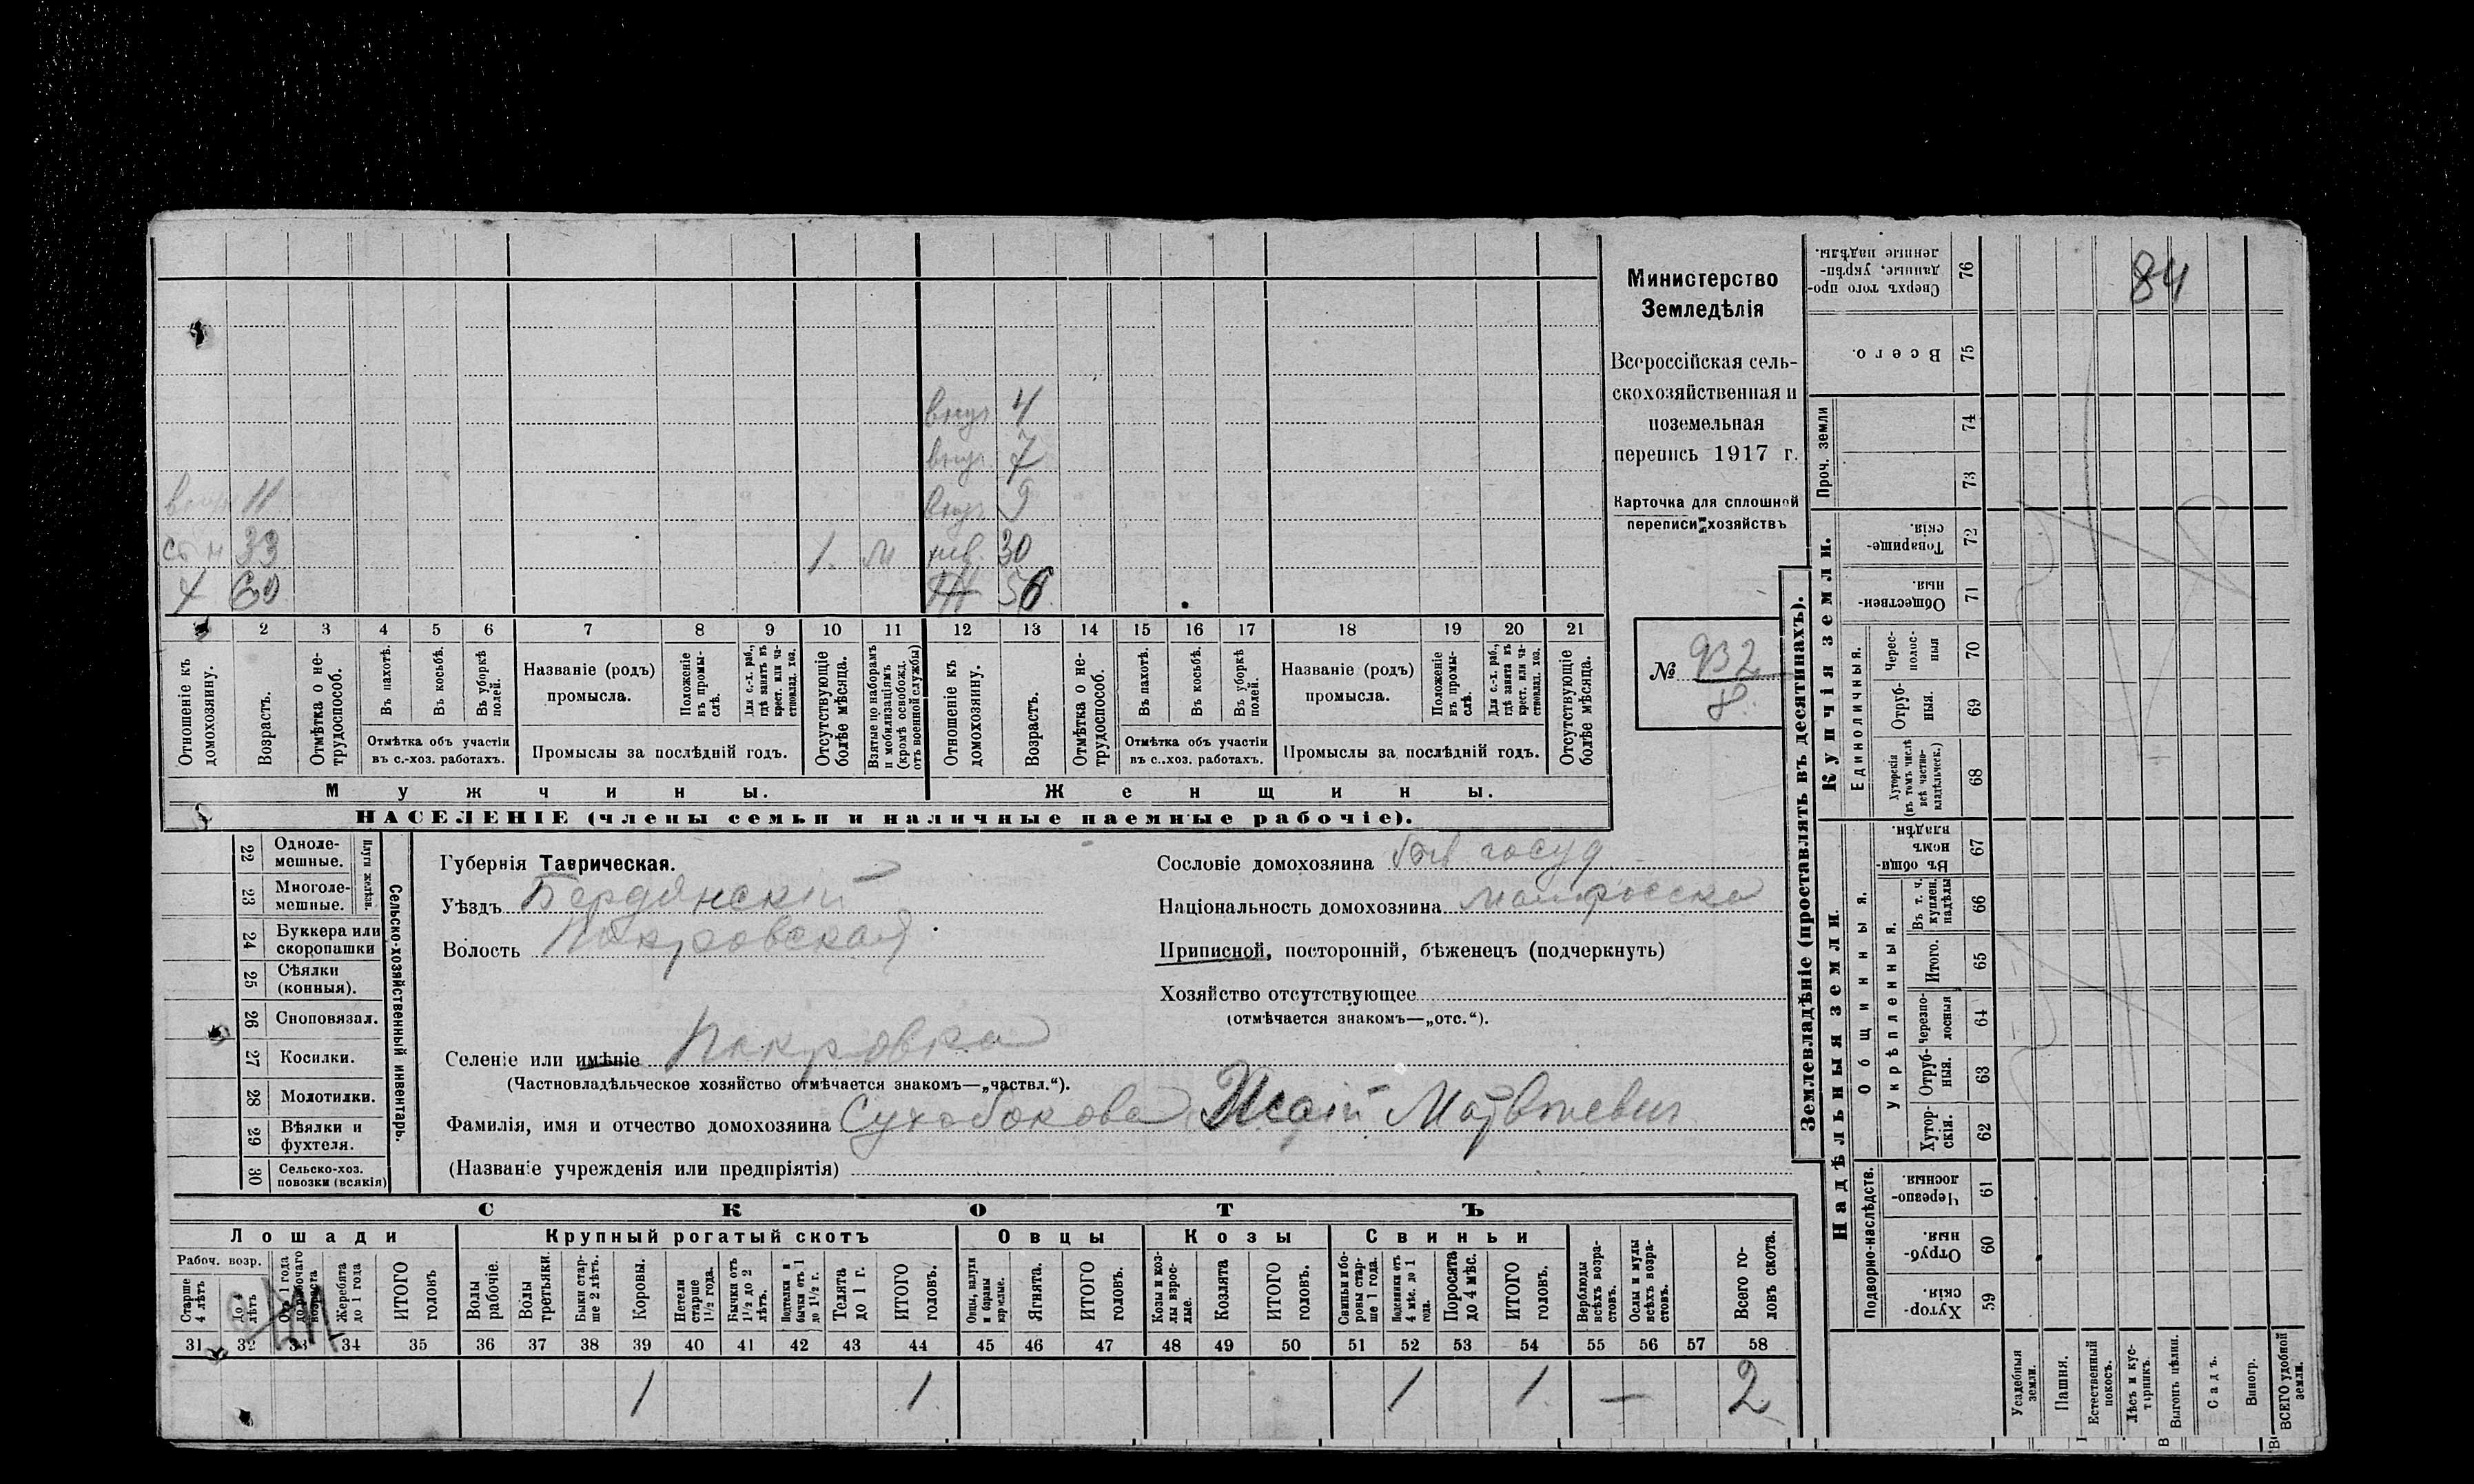 84
Министерство
Земледѣлія
Всероссійская сель-
скохозяйственная и
поземельная
перепись 1917 г.
Карточка для сплошной
переписи хозяйствъ
№ 932
8
внуч. 4
внуч. 7
внук 11
внуч. 9
сын 33 1 м нев. 30
х 60 56
1 2 3 4 5 6 7 8 9 10 11 12 13 14 15 16 17 18 19 20 21
Отношеніе къ домохозяину.
Возрастъ.
Отмѣтка о не-трудоспособ.
Въ пахотѣ.
Въ косьбѣ.
Въ уборкѣ полей.
Отмѣтка объ участіи
въ с.-хоз. работахъ.
Названіе (родъ)
промысла.
Положеніе въ промы-слѣ.
Для с.-х. раб., гдѣ занятъ въ крест. или ча-стновлад. хоз.
Промыслы за послѣдній годъ.
Отсутствующіе болѣе мѣсяца.
Взятые по наборамъ и мобилизаціямъ (кромѣ освобожд. отъ военной службы)
Отношеніе къ домохозяину.
Возрастъ.
Отмѣтка о не-трудоспособ.
Въ пахотѣ.
Въ косьбѣ.
Въ уборкѣ полей.
Отмѣтка объ участіи
въ с.-хоз. работахъ.
Названіе (родъ)
промысла.
Положеніе въ промы-слѣ.
Для с.-х. раб., гдѣ занятъ въ крест. или ча-стновлад. хоз.
Промыслы за послѣдній годъ.
Отсутствующіе болѣе мѣсяца.
Мужчины. Женщины.
НАСЕЛЕНІЕ (члены семьи и наличные наемные рабочіе).
22 Одноле-мешные.
23 Многоле-мешные.
Плуги желѣзн.
24 Буккера или скоропашки
25 Сѣялки (конныя).
26 Сноповязал.
27 Косилки.
28 Молотилки.
29 Вѣялки и фухтеля.
30 Сельско-хоз. повозки (всякія)
Сельско-хозяйственный инвентарь.
Губернія Таврическая.
Уѣздъ Бердянскій
Волость Покровская
Селеніе или имѣніе Покровка
(Частновладѣльческое хозяйство отмѣчается знакомъ—„частвл.“).
Фамилія, имя и отчество домохозяина Сухобокова Исай Матвѣевич
(Названіе учрежденія или предпріятія)
Сословіе домохозяина быв госуд
Національность домохозяина малоросска
Приписной, посторонній, бѣженецъ (подчеркнуть)
Хозяйство отсутствующее
(отмѣчается знакомъ—„отс.“).
СКОТЪ
Лошади Крупный рогатый скотъ Овцы Козы Свиньи
Рабоч. возр.
Старше 4 лѣтъ
До 4 лѣтъ
Отъ 1 года до рабочаго возраста
Жеребята до 1 года
ИТОГО головъ
Волы рабочіе.
Волы третьяки.
Быки стар-ше 2 лѣтъ.
Коровы.
Нетели старше 1 1/2 года.
Бычки отъ 1 1/2 до 2 лѣтъ.
Подтелки и бычки отъ 1 до 1 1/2 г.
Телята до 1 г.
ИТОГО головъ.
Овцы, валухи и бараны взрослые.
Ягнята.
ИТОГО головъ.
Козы и коз-лы взрос-лые.
Козлята
ИТОГО головъ.
Свиньи и бо-ровы стар-ше 1 года.
Подсвинки отъ 4 мѣс. до 1 года.
Поросята до 4 мѣс.
ИТОГО головъ.
Верблюды всѣхъ возра-стовъ.
Ослы и мулы всѣхъ возра-стовъ.
Всего го-ловъ скота.
31 32 33 34 35 36 37 38 39 40 41 42 43 44 45 46 47 48 49 50 51 52 53 54 55 56 57 58
1 1 1 1 — 2
Землевладѣніе (проставлять въ десятинахъ).
Купчія земли.
Надѣльныя земли.
Сверхъ того про-данные, укрѣп-ленные надѣлы. 76
Всего. 75
Проч. земли 74
73
Товарище-скія. 72
Обществен-ныя. 71
Единоличныя.
Черес-полос-ныя 70
Отруб-ныя. 69
Хуторскія (въ томъ числѣ всѣ частно-владѣльческ.) 68
Общинныя.
Въ общин-номъ владѣн. 67
Укрѣпленныя.
Въ т. ч. куплен. надѣлы 66
Итого. 65
Черезпо-лосныя 64
Отруб-ныя. 63
Хутор-скія. 62
Подворно-наслѣдств.
Черезпо-лосныя. 61
Отруб-ныя. 60
Хутор-скія. 59
Усадебныя земли.
Пашня.
Естественный покосъ.
Лѣсъ и кус-тарникъ.
Выгонъ цѣлин.
Садъ.
Виногр.
ВСЕГО удобной земли.